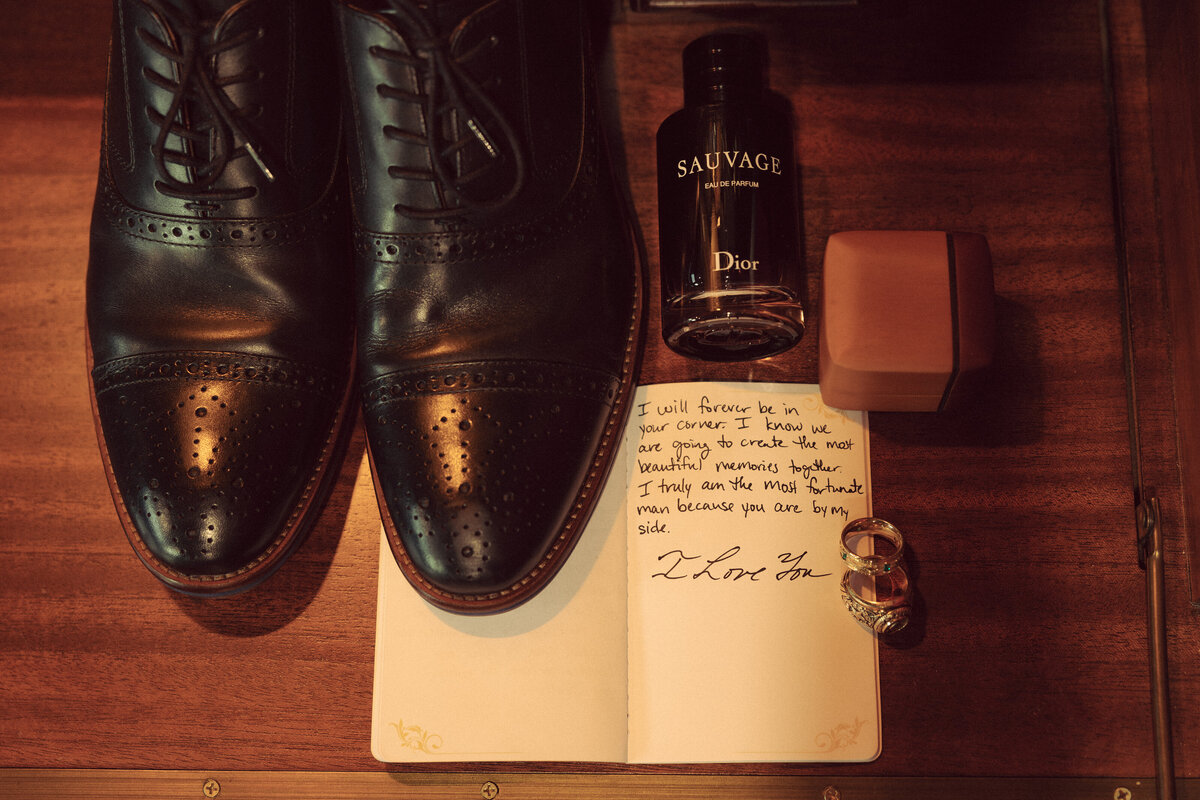 SAUVAGE
EAU DE PARFUM
Dior
I will forever be in
your corner. I know we
are going to create the most
beautiful memories together.
I truly am the most fortunate
man because you are by my
side.
I Love You